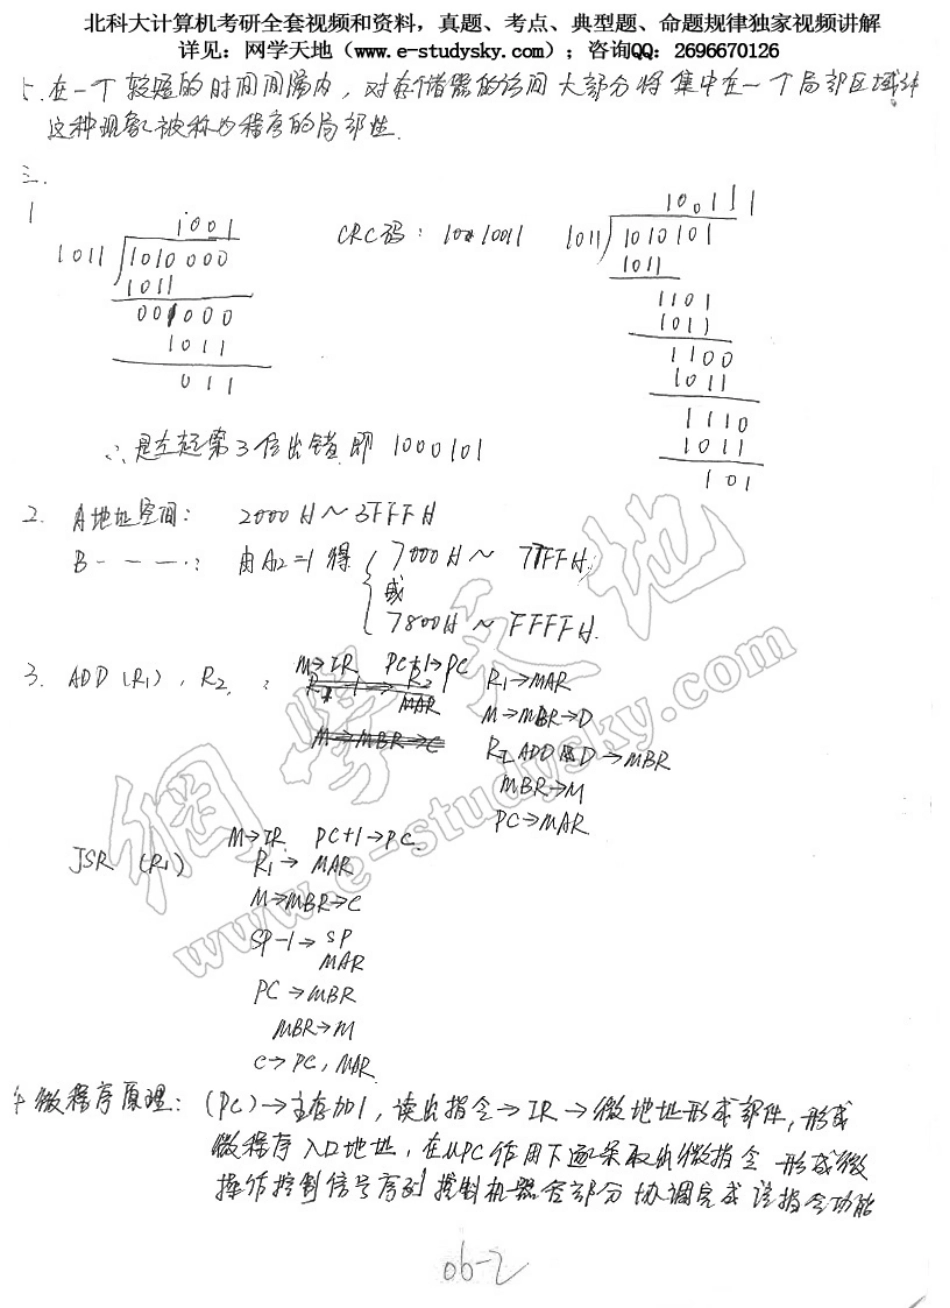 北科大计算机考研全套视频和资料，真题、考点、典型题、命题规律独家视频讲解
详见：网学天地（www.e-studysky.com）；咨询QQ：2696670126
5. 在一个较短的时间间隔内，对存储器的访问大部分将集中在一个局部区域
这种现象被称为程序的局部性.
三.
1
1001
1011 1010000
1011
001000
1011
011
CRC码： 10010011
100111
1011 1010101
1011
1101
1011
1100
1011
1110
1011
101
∴ 是左起第3位出错 即 1000101
2. A地址空间： 2000H～3FFFH
B－－－－： 由A12=1 得 7000H～ 77FFH
或
7800H～FFFFH.
3. ADD (R1), R2 :
M→IR PC+1→PC
R1→MAR
M→MBR→D
R2 ADD D→MBR
MBR→M
PC→MAR
JSR (R1)
M→IR PC+1→PC
R1→MAR
M→MBR→C
SP-1→SP
MAR
PC→MBR
MBR→M
C→PC, MAR
4 微程序原理： (PC)→主存加1, 读出指令→IR→微地址形成部件, 形成
微程序入口地址, 在μPC作用下逐条取出微指令 形成微
操作控制信号序列 控制机器各部分 协调完成 该指令功能
06-2
網學天地
www.e-studysky.com